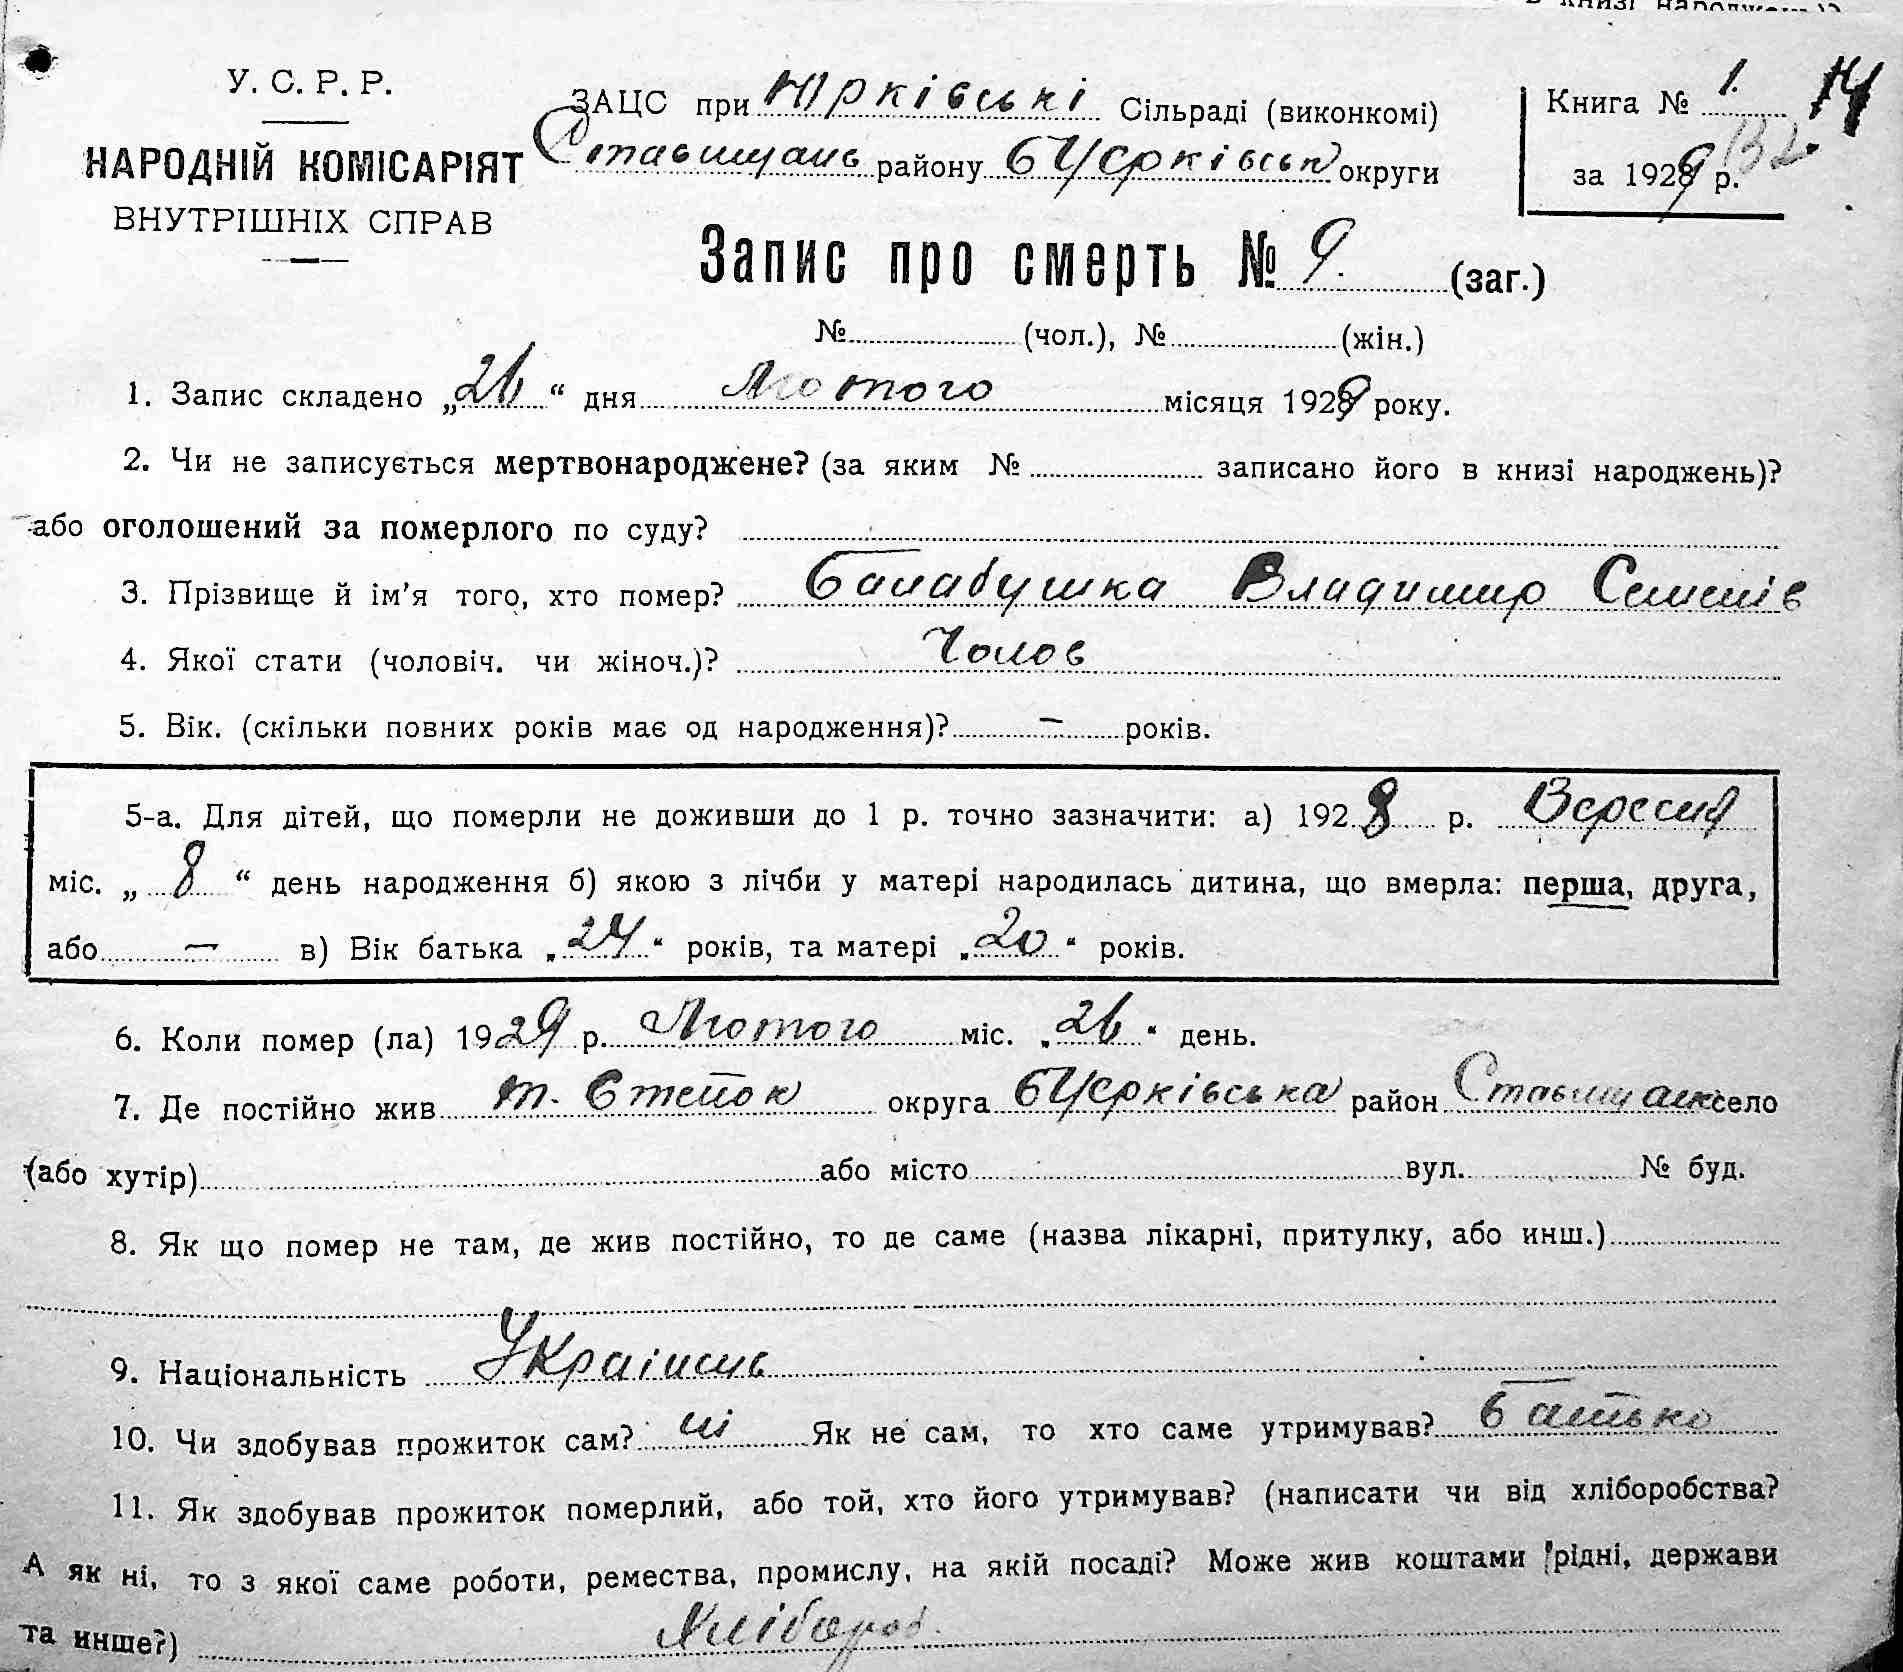 У. С. Р. Р.
НАРОДНІЙ КОМІСАРІЯТ
ВНУТРІШНІХ СПРАВ
ЗАЦС при Юрківські Сільраді (виконкомі)
Ставищань району БЦерківськ округи
Книга № 1. 14
за 1929 р. 132.
Запис про смерть № 9. (заг.)
№ (чол.), № (жін.)
1. Запис складено „26“ дня Лютого місяця 1929 року.
2. Чи не записується мертвонароджене? (за яким № записано його в книзі народжень)?
або оголошений за померлого по суду?
3. Прізвище й ім’я того, хто помер? Балабушка Владимир Семенів
4. Якої стати (чоловіч. чи жіноч.)? Чолов
5. Вік. (скільки повних років має од народження)? — років.
5-а. Для дітей, що померли не доживши до 1 р. точно зазначити: а) 1928 р. Вересня
міс. „8“ день народження б) якою з лічби у матері народилась дитина, що вмерла: перша, друга,
або — в) Вік батька „24“ років, та матері „20“ років.
6. Коли помер (ла) 1929 р. Лютого міс. „26“ день.
7. Де постійно жив округа БЦерківська район Ставищанск село
(або хутір) або місто вул. № буд.
8. Як що помер не там, де жив постійно, то де саме (назва лікарні, притулку, або инш.)
9. Національність Українець
10. Чи здобував прожиток сам? ні Як не сам, то хто саме утримував? Батько
11. Як здобував прожиток померлий, або той, хто його утримував? (написати чи від хліборобства?
А як ні, то з якої саме роботи, ремества, промислу, на якій посаді? Може жив коштами рідні, держави
та инше?) Хлібороб.